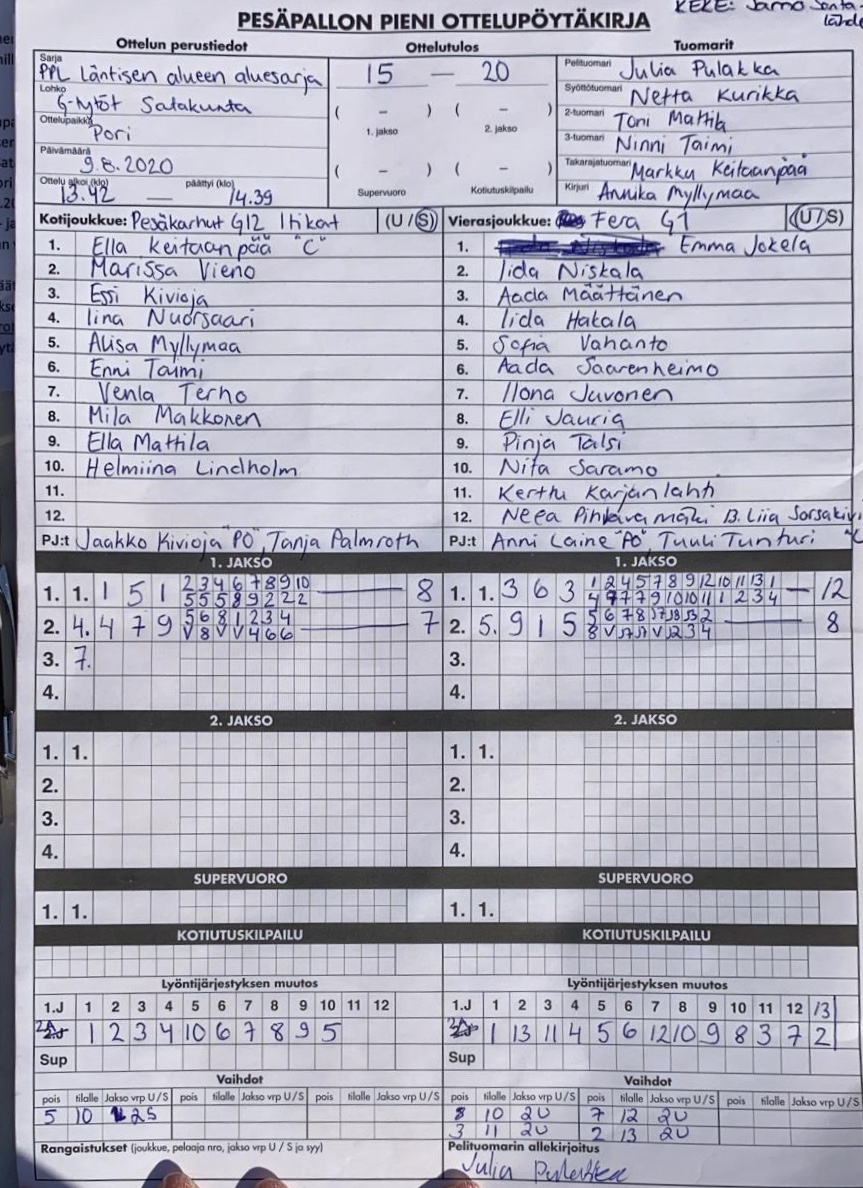 KEKE: Jarmo Santa-
lahde
PESÄPALLON PIENI OTTELUPÖYTÄKIRJA
Ottelun perustiedot Ottelutulos Tuomarit
Sarja PPL Läntisen alueen aluesarja 15 — 20 Pelituomari Julia Pulakka
Lohko G-tytöt Satakunta ( – ) ( – ) Syöttötuomari Netta Kurikka
Ottelupaikka Pori 1. jakso 2. jakso 2-tuomari Toni Mattila
3-tuomari Ninni Taimi
Päivämäärä 9.8.2020 ( – ) ( – ) Takarajatuomari Markku Keitaanpää
Ottelu alkoi (klo) 13.42 — päättyi (klo) 14.39 Supervuoro Kotiutuskilpailu Kirjuri Annika Myllymaa
Kotijoukkue: Pesäkarhut G12 Itikat (U / S) Vierasjoukkue: Fera G1 (U / S)
1. Ella Keitaanpää "C" 1. Emma Jokela
2. Marissa Vieno 2. Iida Niskala
3. Essi Kivioja 3. Aada Määttänen
4. Iina Nuorsaari 4. Iida Hakala
5. Alisa Myllymaa 5. Sofia Vahanto
6. Enni Taimi 6. Aada Saarenheimo
7. Venla Terho 7. Ilona Juvonen
8. Mila Makkonen 8. Elli Jauria
9. Ella Mattila 9. Pinja Talsi
10. Helmiina Lindholm 10. Nita Saramo
11. 11. Kerttu Karjanlahti
12. 12. Neea Pihlavamäki 13. Liia Sorsakivi
PJ:t Jaakko Kivioja "PO", Tanja Palmroth PJ:t Anni Laine "PO" Tuuli Tunturi
1. JAKSO 1. JAKSO
1. 1. 1 5 1 2 3 4 6 7 8 9 10 — 8 1. 1. 3 6 3 1 2 4 5 7 8 9 12 10 11 13 1 — 12
5 5 5 8 9 2 2 2 4 7 7 7 9 10 10 11 1 2 3 4
2. 4. 4 7 9 5 6 8 1 2 3 4 — 7 2. 5. 9 1 5 5 6 7 8 — 8
V 8 V V 4 6 6
3. 7. 3.
4. 4.
2. JAKSO 2. JAKSO
1. 1. 1. 1.
2. 2.
3. 3.
4. 4.
SUPERVUORO SUPERVUORO
1. 1. 1. 1.
KOTIUTUSKILPAILU KOTIUTUSKILPAILU
Lyöntijärjestyksen muutos Lyöntijärjestyksen muutos
1.J 1 2 3 4 5 6 7 8 9 10 11 12 1.J 1 2 3 4 5 6 7 8 9 10 11 12 13
1 2 3 4 10 6 7 8 9 5 1 13 11 4 5 6 12 10 9 8 3 7 2
Sup Sup
Vaihdot Vaihdot
pois tilalle Jakso vrp U/S pois tilalle Jakso vrp U/S pois tilalle Jakso vrp U/S pois tilalle Jakso vrp U/S pois tilalle Jakso vrp U/S pois tilalle Jakso vrp U/S
5 10 2S 8 10 2U 7 12 2U
3 11 2U 2 13 2U
Rangaistukset (joukkue, pelaaja nro, jakso vrp U / S ja syy) Pelituomarin allekirjoitus
Julia Pulakka